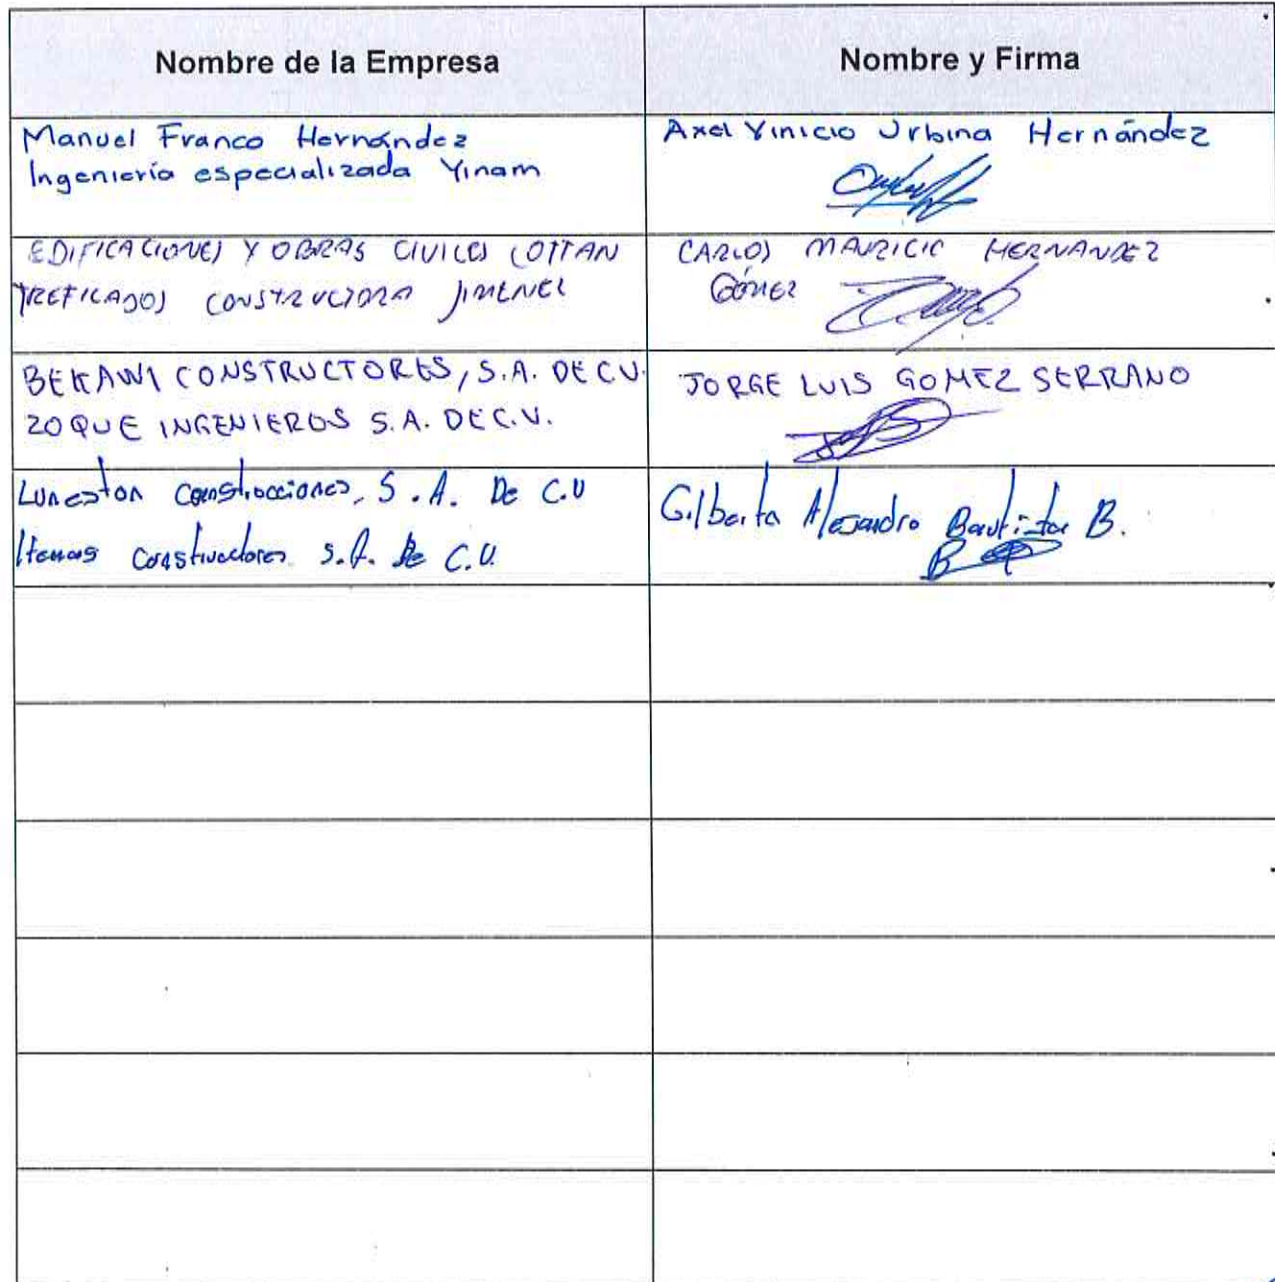 Nombre de la Empresa
Nombre y Firma
Manuel Franco Hernández
Ingeniería especializada Yinam
Axel Vinicio Urbina Hernández
EDIFICACIONES Y OBRAS CIVILES COTTAN
TREFILADOS CONSTRUCTORA JIMENEZ
CARLOS MAURICIO HERNANDEZ
GÓMEZ
BEKAWI CONSTRUCTORES, S.A. DE C.V.
ZOQUE INGENIEROS S.A. DE C.V.
JORGE LUIS GOMEZ SERRANO
Construcciones, S.A. De C.V
Constructores S.A. De C.V.
Gilberto Alejandro Bautista B.